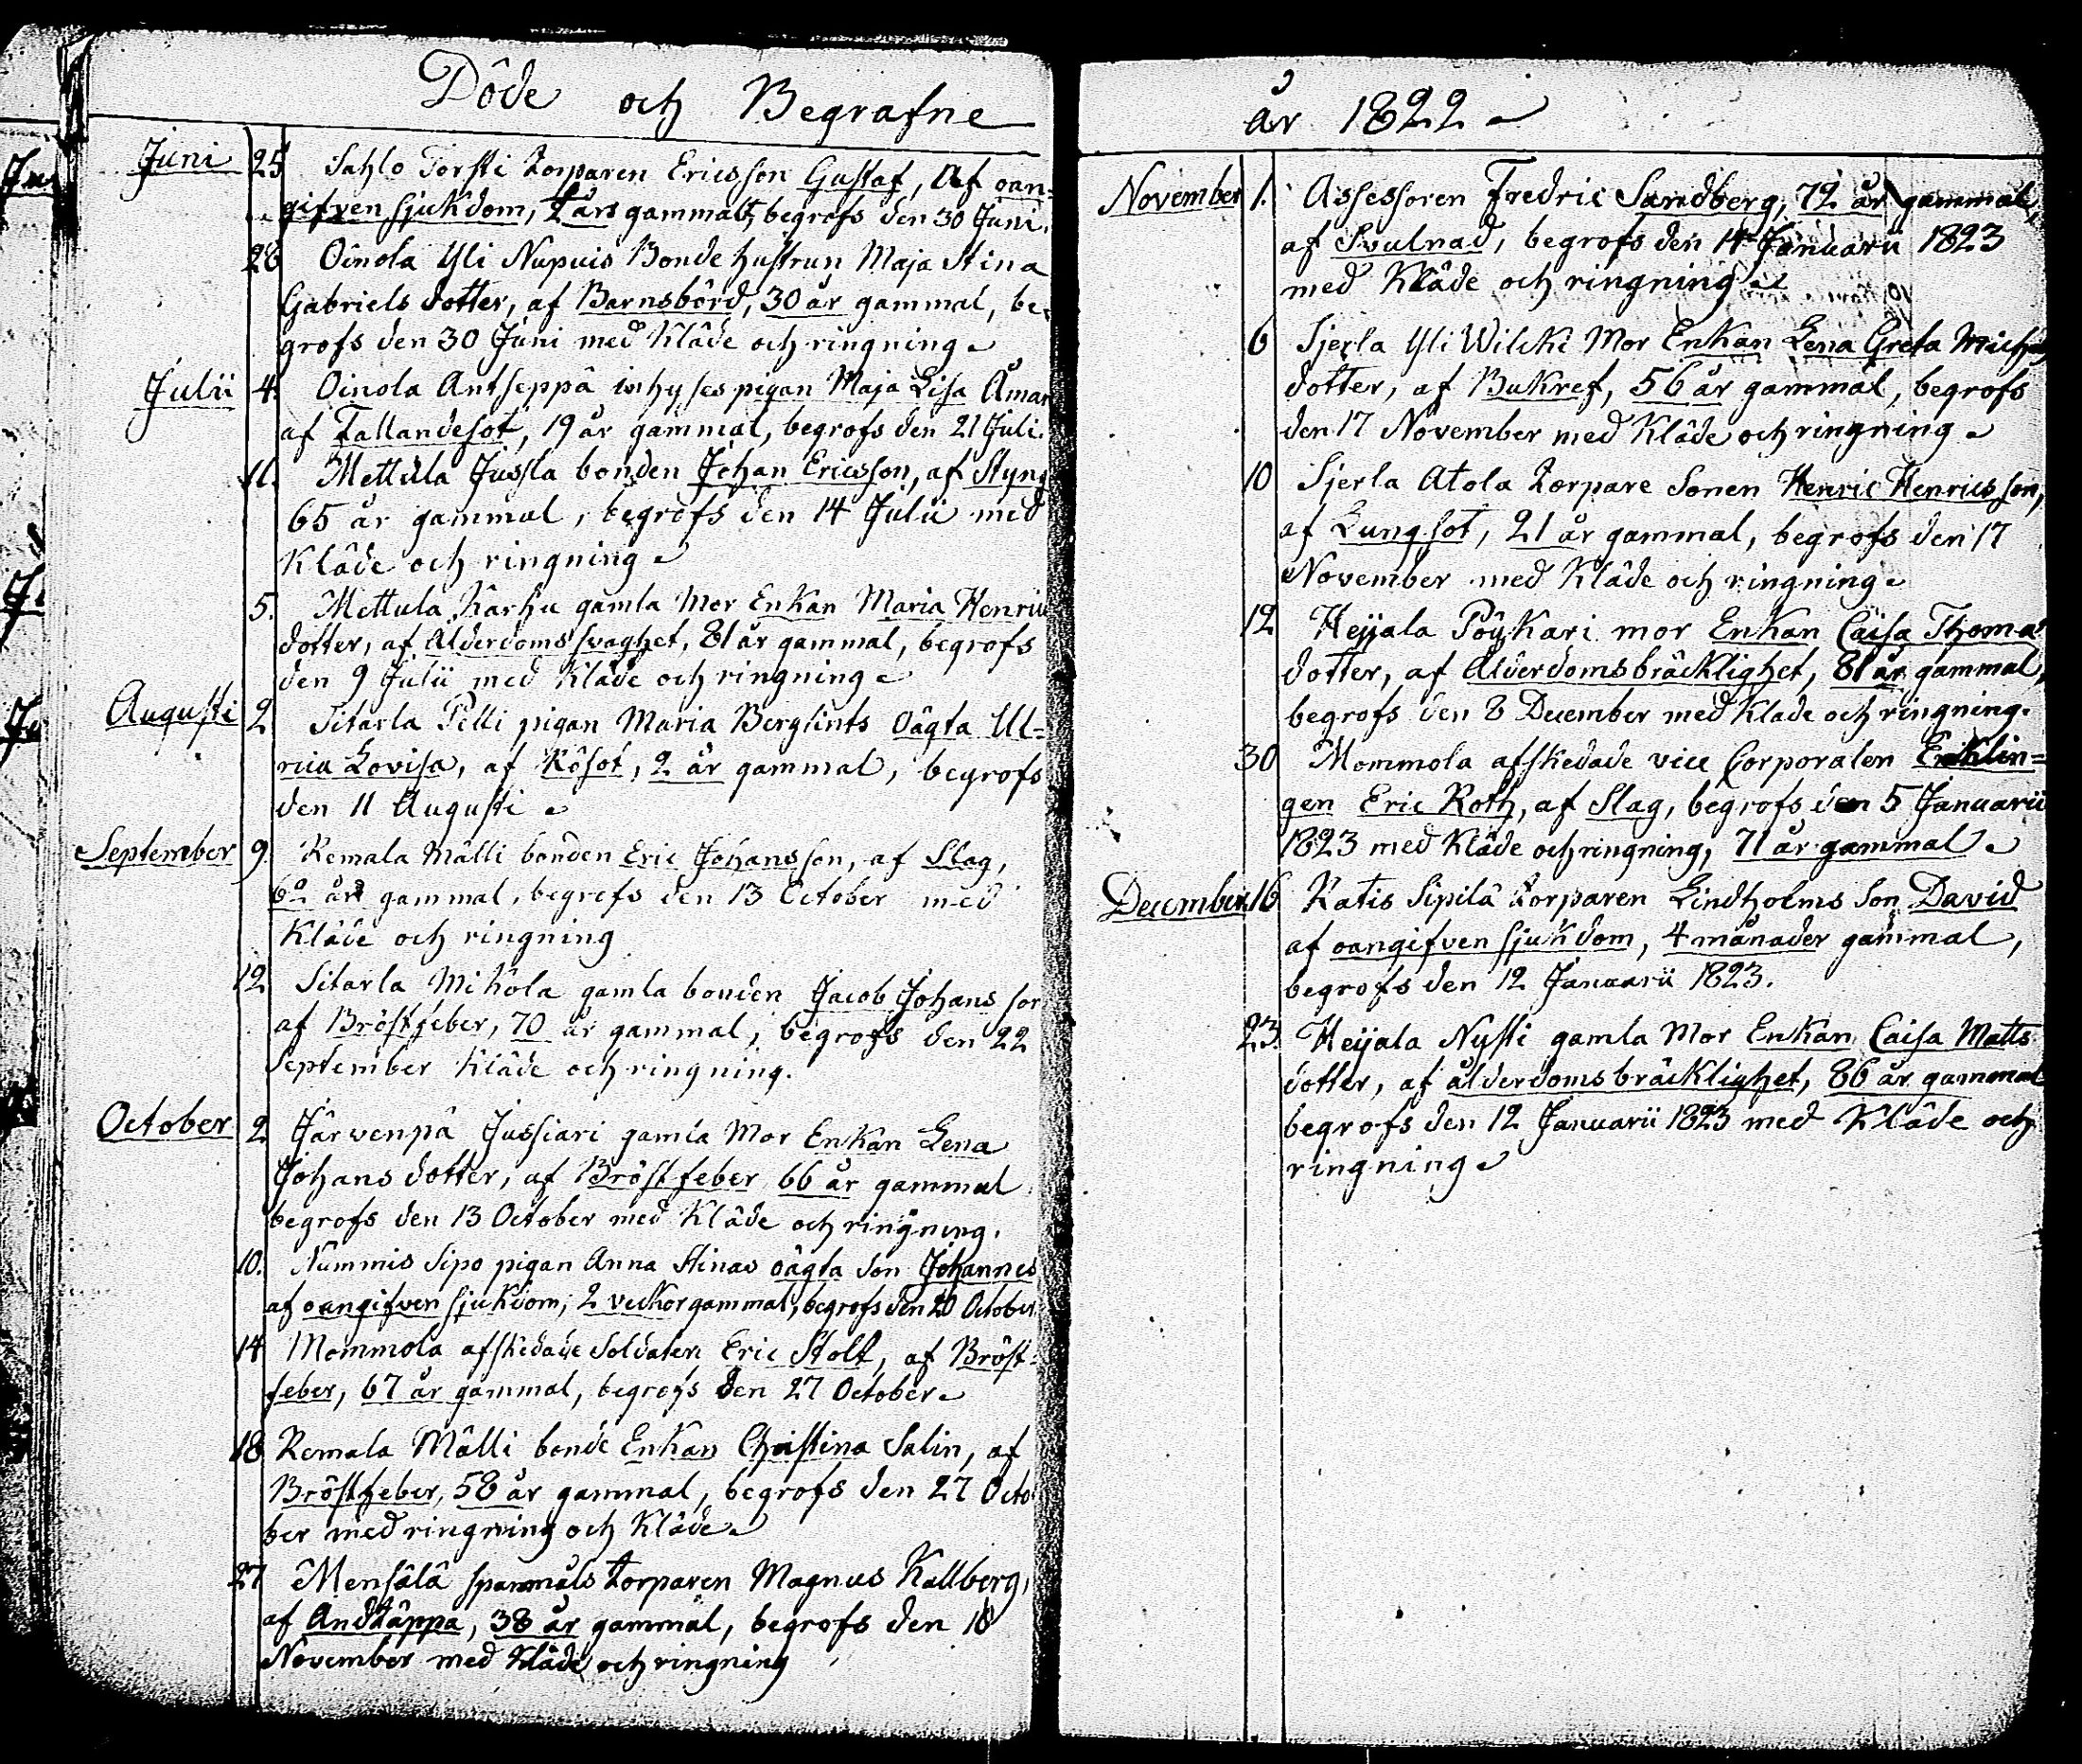 Döde och Begrafne
Juni 25 Sahlo Torsti Torparen Ericsson Gustaf, Af oan-
gifven sjukdom, 2 år gammalt, begrofs den 30 Juni.
26 Oinola Yli Nupuis Bonde hustrun Maja Stina
Gabriels dotter, af Barnsbörd, 30 år gammal, be-
grofs den 30 Juni med Kläde och ringning
Julii 4. Oinola Antseppä inhyses pigan Maja Lisa Åman
af Fallandesot, 19 år gammal, begrofs den 21 Juli.
11. Mettula Jussla bonden Johan Ericsson, af Styng
65 år gammal, begrofs den 14 Julii med
Kläde och ringning
5. Mettula Karhu gamla Mor Enkan Maria Henrics
dotter, af Ålderdoms svaghet, 81 år gammal, begrofs
den 9 Julii med Kläde och ringning
Augusti 2 Sitarla Pelli pigan Maria Berglints oägta Ul-
rica Lovisa, af Rösot, 2 år gammal, begrofs
den 11 Augusti
September 9. Remala Mälli bonden Eric Johansson, af Slag,
62 år gammal, begrofs den 13 October med
Kläde och ringning
12 Sitarla Miköla gamla bonden Jacob Johans son
af Bröstfeber, 70 år gammal, begrofs den 22
September Kläde och ringning.
October 2 Järwenpä Jussiari gamla Mor Enkan Lena
Johans dotter, af Bröstfeber 66 år gammal
begrofs den 13 October med Kläde och ringning.
10. Nummis Sipo pigan Anna Stinas oägta son Johannes
af oangifven sjukdom, 2 veckor gammal, begrofs den 20 October
14 Mommola afskedade Soldaten Eric Stolt, af Bröst-
feber, 67 år gammal, begrofs den 27 October
18 Remala Mälli bonde Enkan Christina Salin, af
Bröstfeber, 58 år gammal, begrofs den 27 Octo
ber med ringning och Kläde
27 Mensälä spanmåls torparen Magnus Kallberg,
af Andtäppa, 38 år gammal, begrofs den 18
November med Kläde och ringning
år 1822
November 1. Assessoren Fredric Sandberg, 72 år gammal,
af Svulnad, begrofs den 14 Januarii 1823
med Kläde och ringning
6 Sjerla Yli Wilcki Mor Enkan Lena Greta Michels
dotter, af Bukref, 56 år gammal, begrofs
den 17 November med Kläde och ringning
10 Sjerla Atola Torpare Sonen Henric Henricsson,
af Lungsot, 21 år gammal, begrofs den 17
November med Kläde och ringning
12 Heijala Pöykari mor Enkan Caisa Thomas
dotter, af Ålderdomsbräcklighet, 81 år gammal,
begrofs den 8 December med Kläde och ringning.
30 Mommola afskedade vice Corporalen Enklin-
gen Eric Roth, af Slag, begrofs den 5 Januarii
1823 med Kläde och ringning, 71 år gammal
December 16 Katis Sipilä torparen Lindholms Son David
af oangifven sjukdom, 4 månader gammal,
begrofs den 12 Januarii 1823.
23. Heijala Nysti gamla Mor Enkan Caisa Matts
dotter, af ålderdomsbräcklighet, 86 år gammal
begrofs den 12 Januarii 1823 med Kläde och
ringning